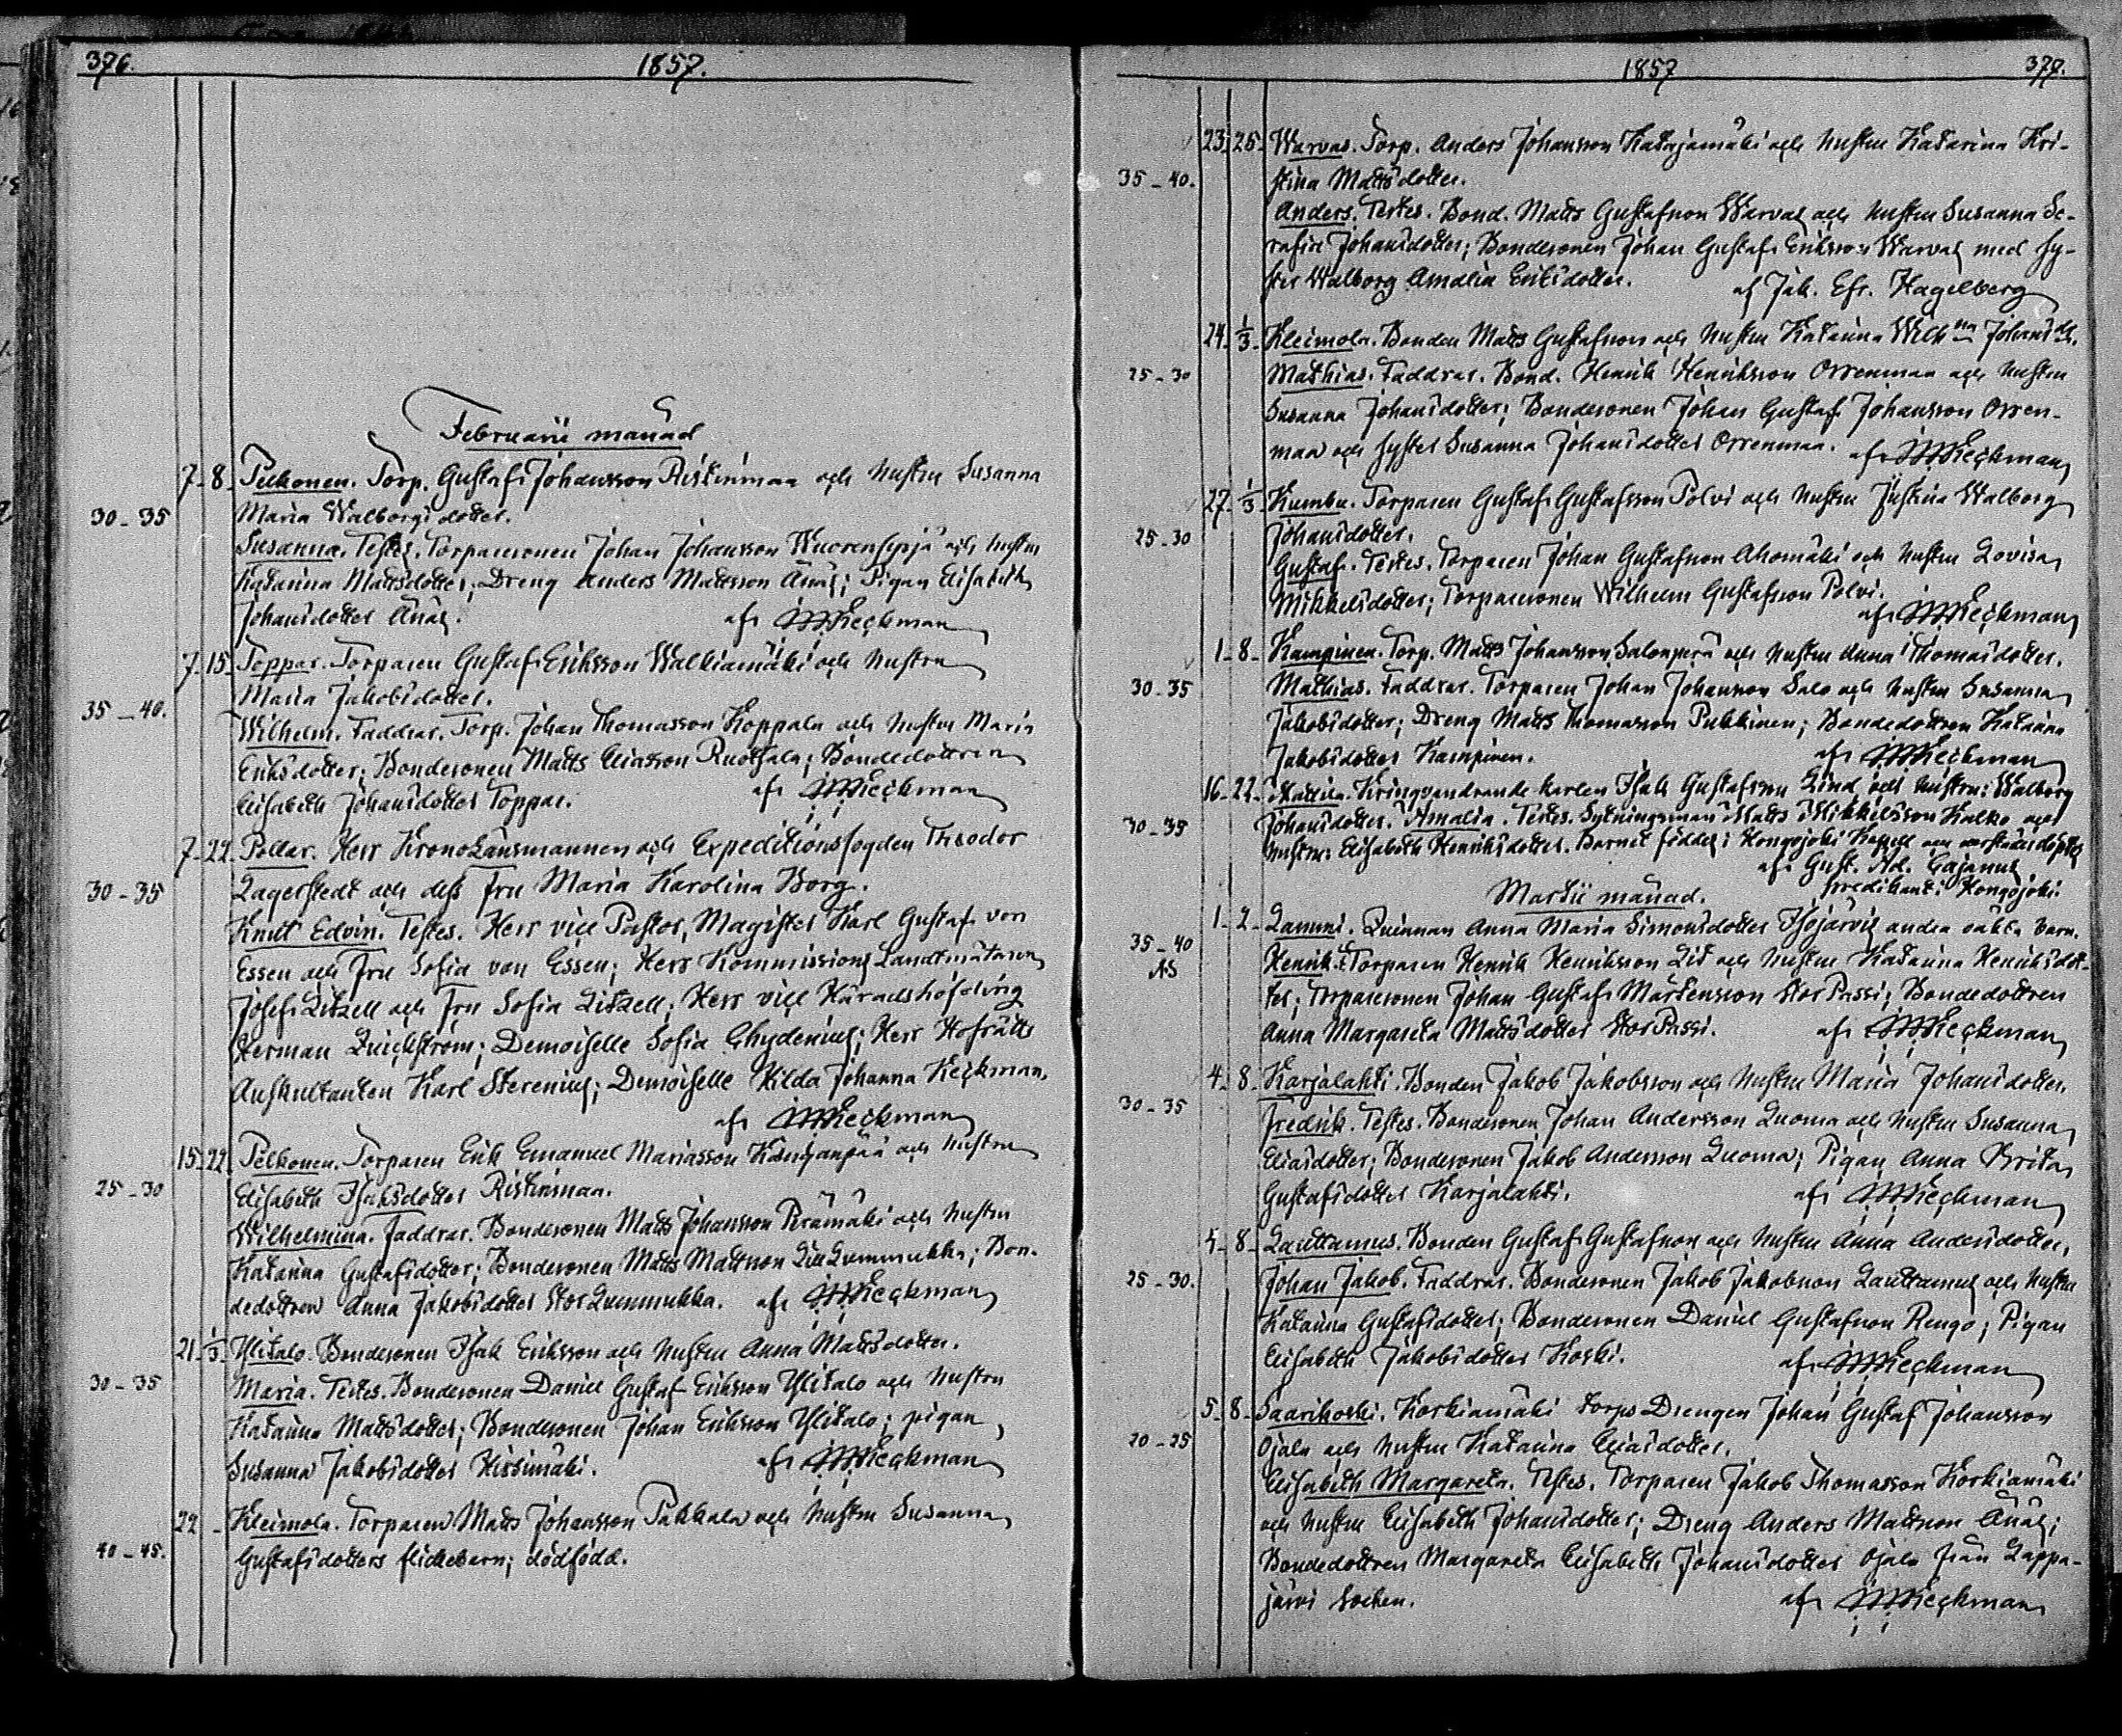 376. 1857.
Februarii månad
7 - 8 - Pelkonen. Torp. Gustaf Johansson Ristinmaa och hustru Susanna
30 - 35 Maria Walborgsdotter.
Susanna. Testes. Torparesonen Johan Johansson och hustru
Katarina Mattsdotter; Dreng Anders Mattsson Änäs; Pigan Elisabeth
Johansdotter Änäs. af Heckman
7 - 15 - Toppar. Torparen Gustaf Eriksson Walkiamäki och hustru
Maria Jakobsdotter.
35 - 40.
Wilhelm. Faddrar. Torp. Johan Thomasson Koppala och hustru Maria
Eriksdotter; Bondesonen Matts Eliasson Ruotsala; Bondedottren
Elisabeth Johansdotter Toppar. af Heckman
7 - 22 - Pollar. Herr KronoLänsmannen och Expeditionsfogden Theodor
30 - 35 Lagerstedt och dess fru Maria Karolina Borg.
Knut Edvin. Testes. Herr vice Pastor, Magister Karl Gustaf von
Essen och Fru Sofia von Essen; Herr Kommissions Landtmätaren
Josef Litzell och Fru Sofia Litzell; Herr vice Häradshöfding
Herman Quickström; Demoiselle Sofia Chydenius; Herr Hofrätts
Auskultanten Karl Sterenius; Demoiselle Hilda Johanna Heckman.
af Heckman
15 - 22 Pelkonen. Torparen Erik Emanuel Mariasson Kanganpää och hustru
25 - 30 Elisabeth Isaksdotter Ristinmaa.
Wilhelmina. Faddrar. Bondesonen Matts Johansson Perämäki och hustru
Katarina Gustafsdotter; Bondesonen Matts Mattsson LillLummukka; Bon-
dedottren Anna Jakobsdotter StorLummukka. af Heckman
21 - 1/3 - Ylitalo. Bondesonen Isak Eriksson och hustru Anna Mattsdotter.
30 - 35 Maria. Testes. Bondesonen Daniel Gustaf Eriksson Ylitalo och hustru
Katarina Mattsdotter; Bondesonen Johan Eriksson Ylitalo; pigan
Susanna Jakobsdotter Hissimäki. af Heckman
22 - Kleimola. Torparen Matts Johansson Pakkala och hustru Susanna
40 - 45. Gustafsdotters flickebarn; dödfödd.
1857 377.
23 - 25 - Warvas. Torp. Anders Johansson Katajamäki och hustru Katarina Kri-
35 - 40. stina Mattsdotter.
Anders. Testes. Bond. Matts Gustafsson Warvas och hustru Susanna Se-
rafia Johansdotter; Bondesonen Johan Gustaf Eriksson Warvas med sy-
ster Walborg Amalia Eriksdotter. af Jak. Efr. Hagelberg
24 - 1/3 - Kleimola. Bonden Matts Gustafsson och hustru Katarina Wilhna Johansdr.
25 - 30 Mathias. Faddrar. Bond. Henrik Henriksson Orrenmaa och hustru
Susanna Johansdotter; Bondesonen Johan Gustaf Johansson Orren-
maa och syster Susanna Johansdotter Orrenmaa. af Heckman
27 - 1/3 - Kumbu. Torparen Gustaf Gustafsson Polvi och hustru Justina Walborg
25 - 30 Johansdotter.
Gustaf. Testes. Torparen Johan Gustafsson Ahomäki och hustru Lovisa
Mikkelsdotter; Torparesonen Wilhelm Gustafsson Polvi.
af Heckman
1 - 8 - Kampinen. Torp. Matts Johansson Salonperä och hustru Anna Thomasdotter.
30 - 35 Mathias. Faddrar. Torparen Johan Johansson Salo och hustru Susanna
Jakobsdotter; Dreng Matts Thomasson Pukkinen; Bondedottren Katarina
Jakobsdotter Kampinen. af Heckman
16 - 22 - Mattila. Kringvandrande karlen Isak Gustafsson Lind och hustru: Walborg
30 - 35 Johansdotter. Amalia. Testes. Sytningsman Matts Mikkelsson Kalko och
hustru: Elisabeth Henriksdotter. Barnet föddes i Kongojoki Kapell och
af Gust. Ad. Cajanus
predikant i Kongojoki.
Martii månad.
1 - 2 - Lammi. Quinnan Anna Maria Simonsdotter Isojärvis andra oäkta barn.
35 - 40 Henrik. T. Torparen Henrik Henriksson Lit och hustru Katarina Henriksdot-
AS ter; Torparesonen Johan Gustaf Mårtensson StorPassi; Bondedottren
Anna Margareta Mattsdotter StorPassi. af Heckman
4 - 8 - Karjalahti. Bonden Jakob Jakobsson och hustru Maria Johansdotter.
30 - 35
Fredrik. Testes. Bondesonen Johan Andersson Luoma och hustru Susanna
Eliasdotter; Bondesonen Jakob Andersson Luoma; Pigan Anna Brita
Gustafsdotter Karjalahti. af Heckman
5 - 8 - Lauttamus. Bonden Gustaf Gustafsson och hustru Anna Andersdotter.
25 - 30. Johan Jakob. Faddrar. Bondesonen Jakob Jakobsson Lauttamus och hustru
Katarina Gustafsdotter; Bondesonen Daniel Gustafsson Rengo; Pigan
Elisabeth Jakobsdotter Koski. af Heckman
5 - 8 - Saarikoski. Korkiamäki torps Drengen Johan Gustaf Johansson
20 - 25 Ojala och hustru Katarina Eliasdotter.
Elisabeth Margareta. Testes. Torparen Jakob Thomasson Korkiamäki
och hustru Elisabeth Johansdotter; Dreng Anders Mattsson Änäs;
Bondedottren Margareta Elisabeth Johansdotter Ojala från Lappa-
järvi Socken. af Heckman